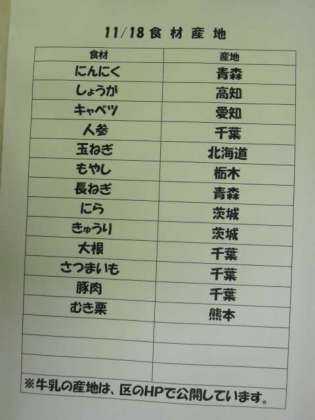 11/18食材産地
食材 産地
にんにく 青森
しょうが 高知
キャベツ 愛知
人参 千葉
玉ねぎ 北海道
もやし 栃木
長ねぎ 青森
にら 茨城
きゅうり 茨城
大根 千葉
さつまいも 千葉
豚肉 千葉
むき栗 熊本
※牛乳の産地は、区のHPで公開しています。